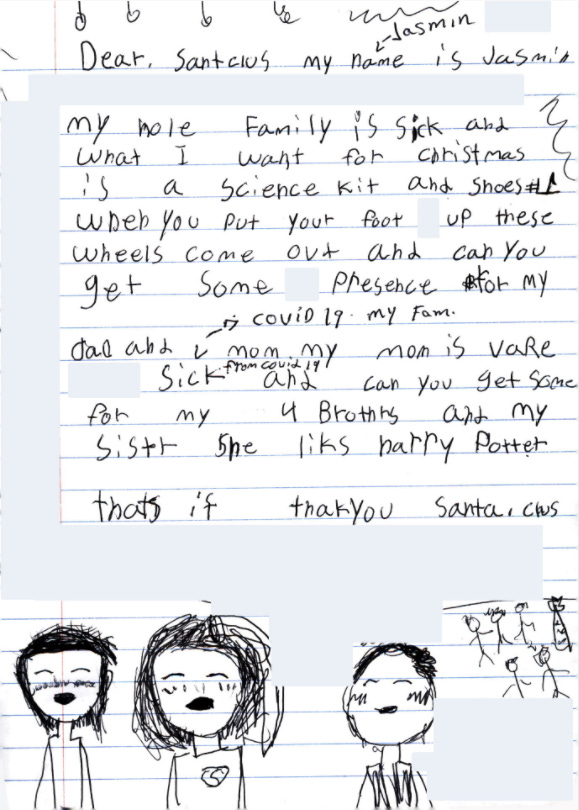 Jasmin
Dear. Santclus my name is Jasmin
my hole Family is Sick and
what I want for christmas
is a science kit and shoes #1
when you put your foot up these
wheels come out and can you
get Some Presence for my
covid 19. my Fam.
dad and mom. my mom is vare
from covid 19
Sick and can you get some
for my 4 Brothrs and my
Sistr She liks harry Potter
thats if thakyou Santa. clus